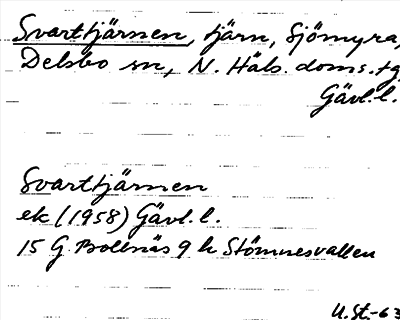 Svarttjärnen, tjärn, Sjömyra,
Delsbo sn, N. Häls. doms. tg
Gävl. l.
Svarttjärnen
ek (1958) Gävl. l.
15 G Bollnäs 9 h Stömnesvallen
U.St.-63